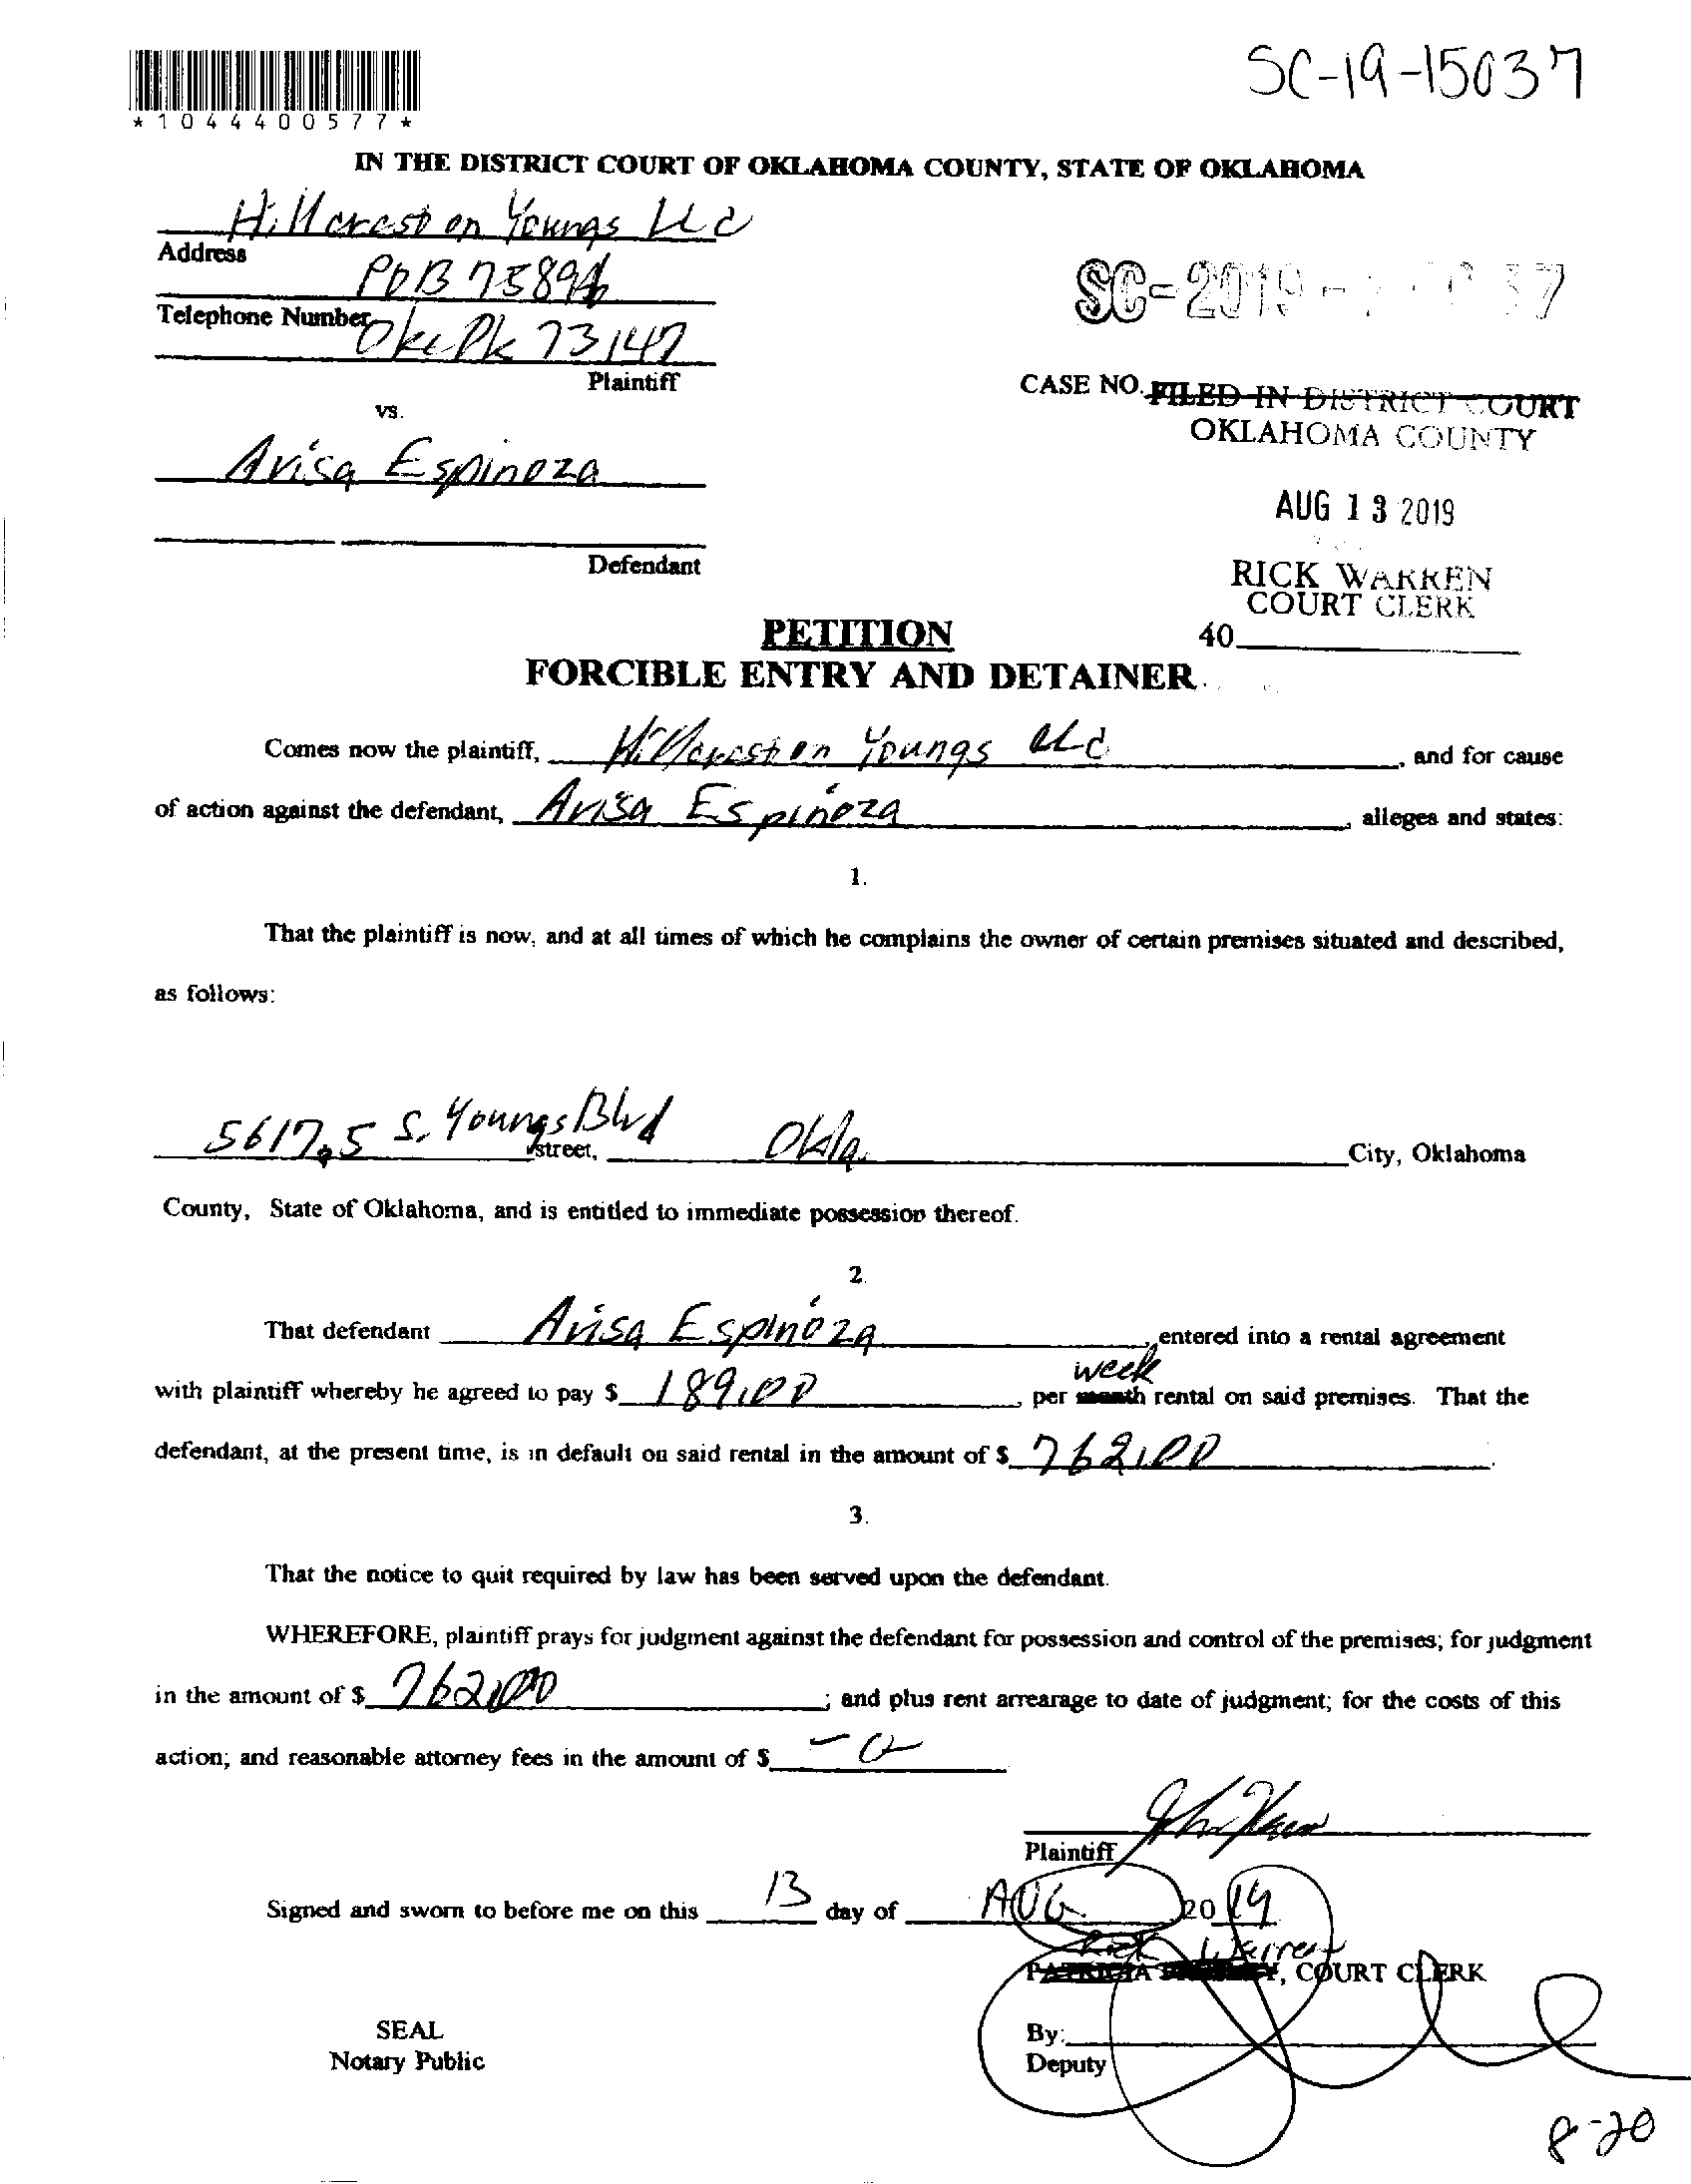 SC-19-15037
*1044400577*
IN THE DISTRICT COURT OF OKLAHOMA COUNTY, STATE OF OKLAHOMA
Hillcrest on Youngs LLC
Address
POB 75894
Telephone Number
Okc Ok 73147
Plaintiff
SC-2019-
37
CASE NO.
FILED IN DISTRICT COURT
OKLAHOMA COUNTY
vs.
Avisa Espinoza
AUG 13 2019
Defendant
RICK WARREN
COURT CLERK
40
PETITION
FORCIBLE ENTRY AND DETAINER
Comes now the plaintiff, Hillcrest on Youngs LLC, and for cause
of action against the defendant, Avisa Espinoza, alleges and states:
1.
That the plaintiff is now, and at all times of which he complains the owner of certain premises situated and described,
as follows:
5617.5 S. Youngs Blvd street, Okla. City, Oklahoma
County, State of Oklahoma, and is entitled to immediate possession thereof.
2.
That defendant Avisa Espinoza, entered into a rental agreement
week
with plaintiff whereby he agreed to pay $ 189.00, per month rental on said premises. That the
defendant, at the present time, is in default on said rental in the amount of $ 762.00.
3.
That the notice to quit required by law has been served upon the defendant.
WHEREFORE, plaintiff prays for judgment against the defendant for possession and control of the premises; for judgment
in the amount of $ 762.00; and plus rent arrearage to date of judgment; for the costs of this
action; and reasonable attorney fees in the amount of $ -0-
Plaintiff
Signed and sworn to before me on this 13 day of AUG 2019
Rick Warren
PATRICIA, COURT CLERK
SEAL
Notary Public
By:
Deputy
8-20